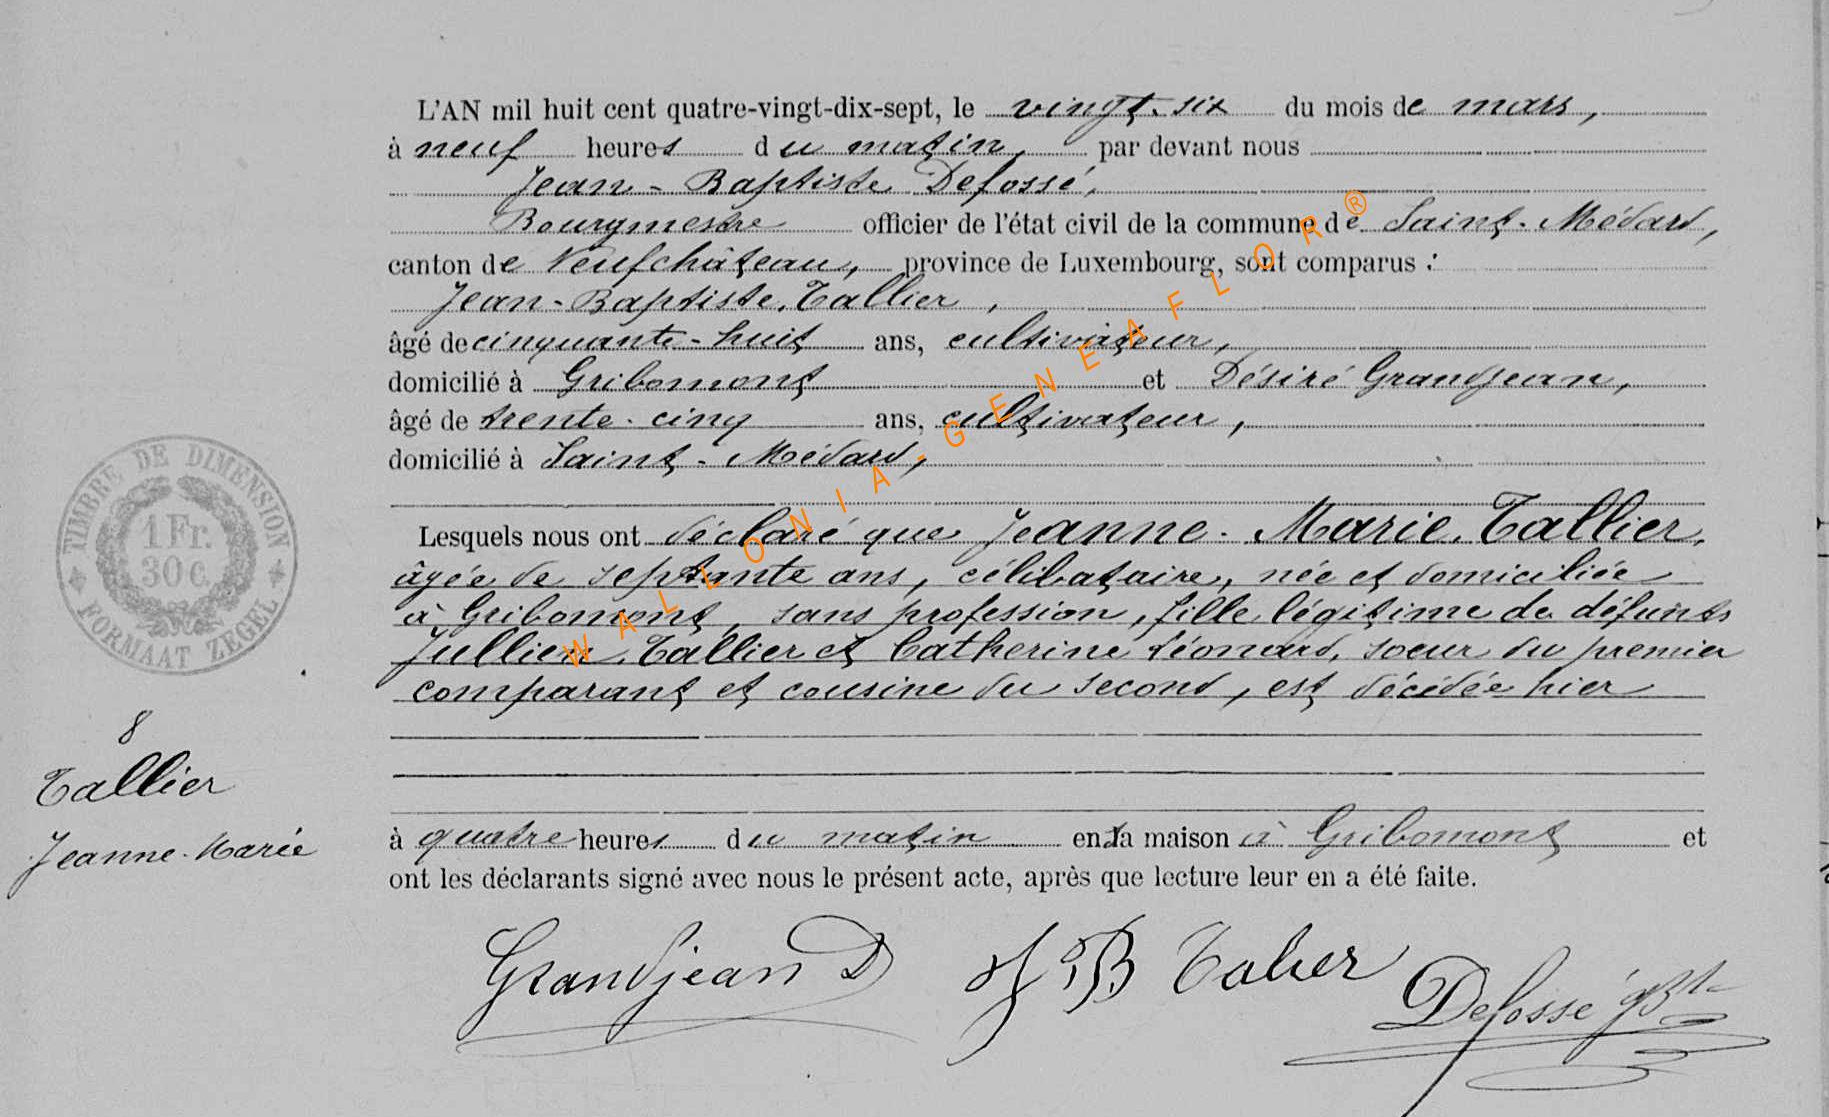 L'AN mil huit cent quatre-vingt-dix-sept, le vingt-six du mois de mars,
à neuf heures du matin, par devant nous
Jean-Baptiste Defossé,
Bourgmestre officier de l'état civil de la commune de Saint-Médard,
canton de Neufchâteau, province de Luxembourg, sont comparus :
Jean-Baptiste Tallier,
âgé de cinquante-huit ans, cultivateur,
domicilié à Gribomont et Désiré Grandjean,
âgé de trente-cinq ans, cultivateur,
domicilié à Saint-Médard,
Lesquels nous ont déclaré que Jeanne-Marie Tallier,
âgée de septante ans, célibataire, née et domiciliée
à Gribomont, sans profession, fille légitime de défunts
Jullien Tallier et Catherine Léonard, soeur du premier
comparant et cousine du second, est décédée hier
à quatre heures du matin en sa maison à Gribomont et
ont les déclarants signé avec nous le présent acte, après que lecture leur en a été faite.
Grandjean D J B Talier Defossé JBt
TIMBRE DE DIMENSION
1 Fr.
30 c.
FORMAAT ZEGEL
8
Tallier
Jeanne-Marie
WALLONIA-GENEAFLOR®